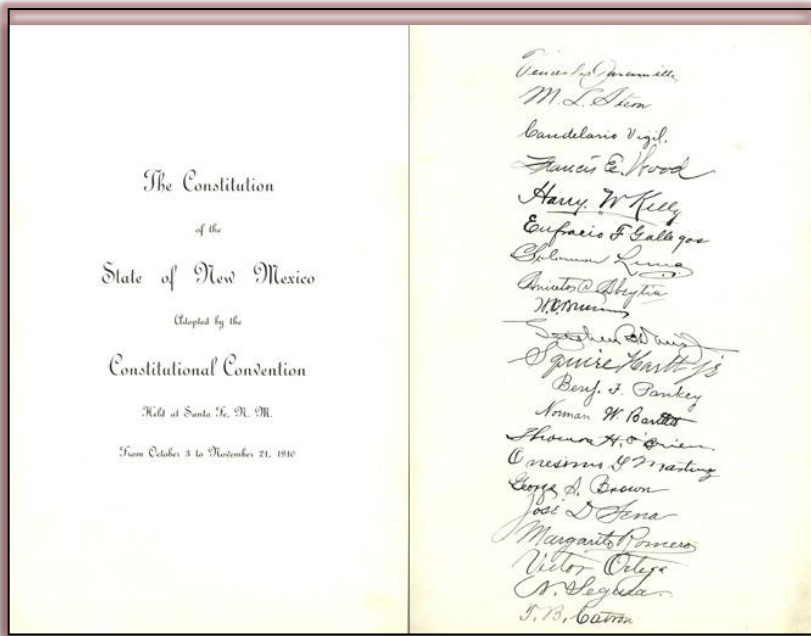 The Constitution
of the
State of New Mexico
Adopted by the
Constitutional Convention
Held at Santa Fe, N. M.
From October 3 to November 21, 1910
M. L. Stern
Candelario Vigil.
Francis E. Wood
Harry. W Kelly
Eufracio F Gallegos
Solomon Luna
Aniceto C Abeytia
Stephen B Davis Jr
Squire Hartt Jr
Benj. F. Pankey
Norman W. Bartlett
Thomas H. O'Brien
Onesimo G Martinez
George S. Brown
José D Sena
Margarito Romero
Victor Ortega
N. Segura
T. B. Catron